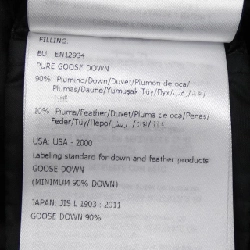 FILLING:
EU: EN12934
PURE GOOSE DOWN
90% Piumino/Down/Duvet/Plumon de oca/
Plumes/Daune/Yumuşak Tüy/Пух/
10% Piuma/Feather/Duvet/Pluma de oca/Penas/
Feder/Tüy/Перо/
USA: USA - 2000
Labeling standard for down and feather products:
GOOSE DOWN
(MINIMUM 90% DOWN)
JAPAN: JIS L 1903 : 2011
GOOSE DOWN 90%